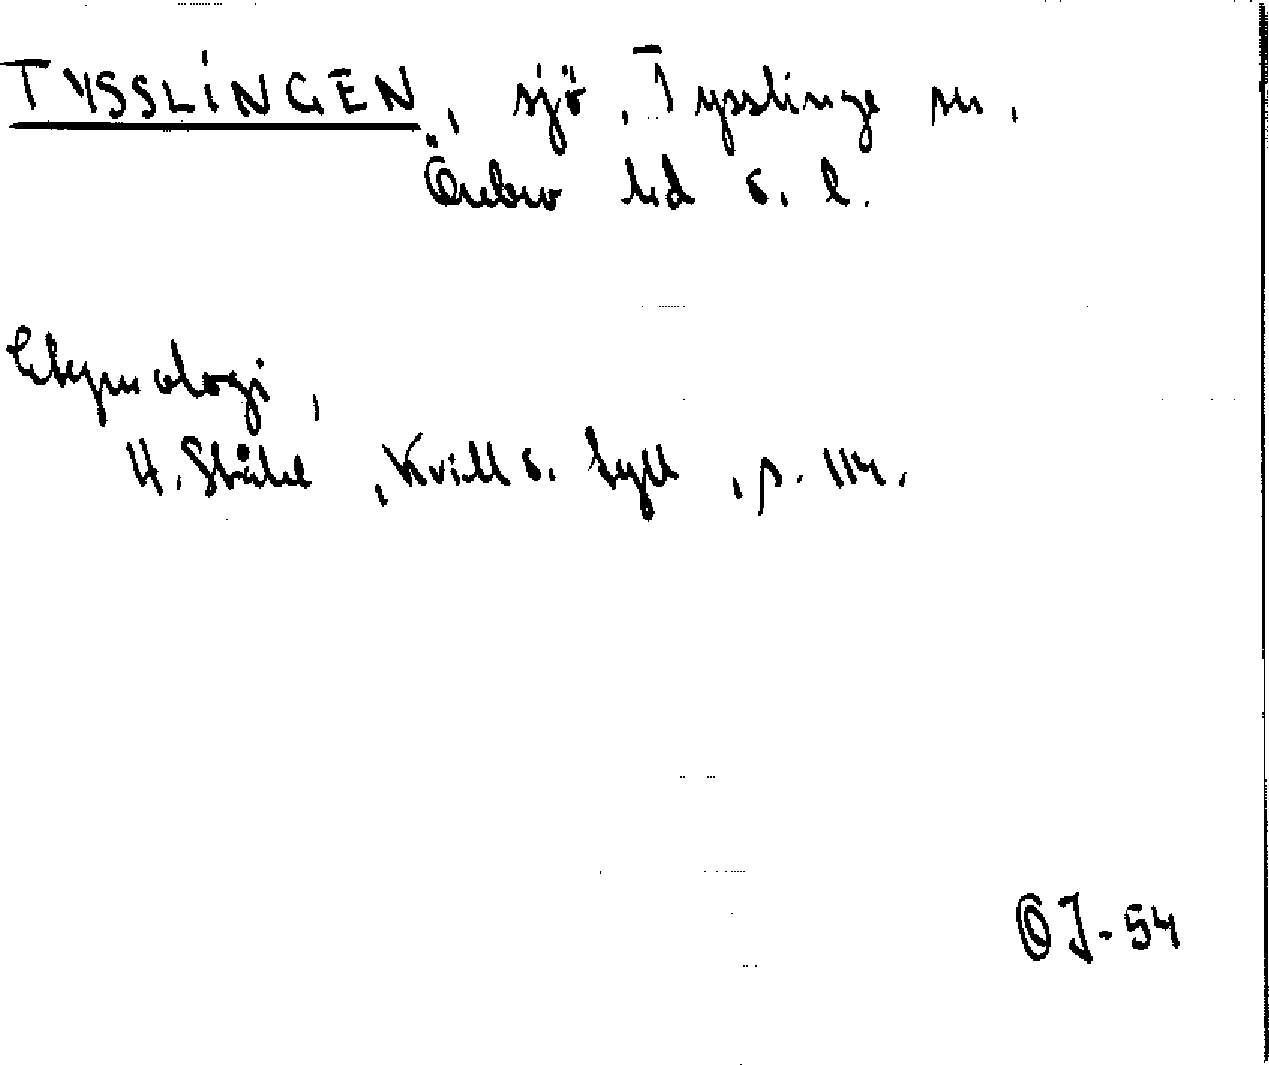 TYSSLINGEN, sjö, Tysslinge sn,
Örebro hd o. l.
Etymologi,
H. Ståhl, Kvill o. Tyll, p. 114.
OJ-54